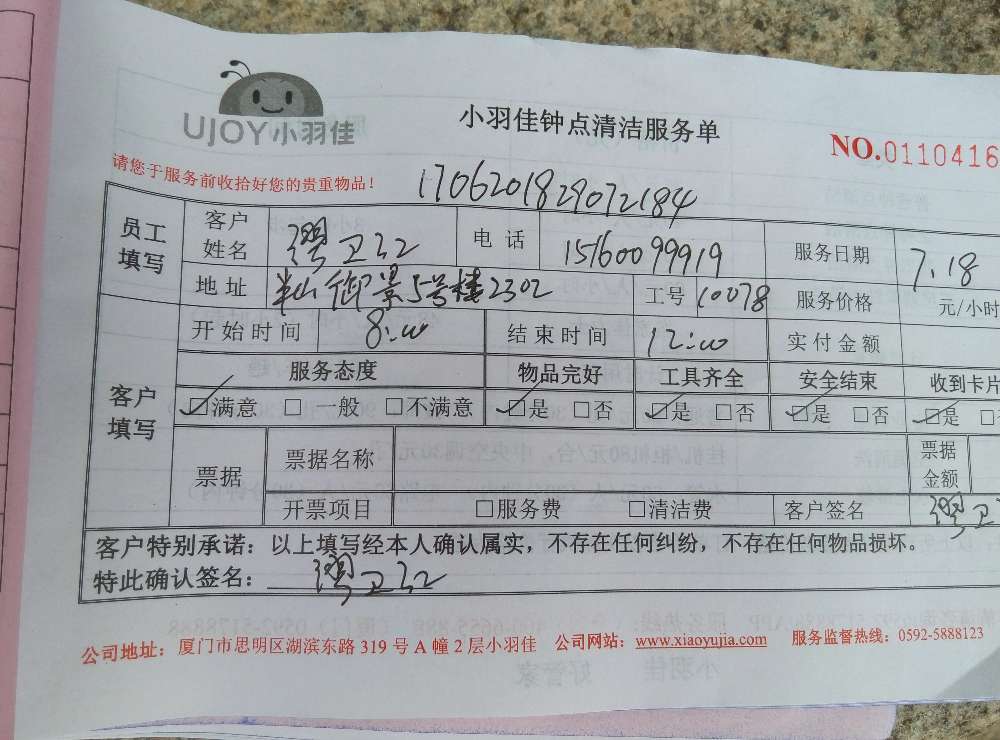 UJOY小羽佳
小羽佳钟点清洁服务单
NO.0110416
请您于服务前收拾好您的贵重物品!
1706201829072184
员工填写 客户姓名 电话 15160099919 服务日期 7.18
地址 半山御景5号楼2302 工号 10078 服务价格 元/小时
客户填写 开始时间 8:00 结束时间 12:00 实付金额
服务态度 物品完好 工具齐全 安全结束 收到卡片
☑满意 □一般 □不满意 ☑是 □否 ☑是 □否 ☑是 □否 ☑是
票据 票据名称 票据金额
开票项目 □服务费 □清洁费 客户签名
客户特别承诺：以上填写经本人确认属实，不存在任何纠纷，不存在任何物品损坏。
特此确认签名：
公司地址：厦门市思明区湖滨东路 319 号 A 幢 2 层小羽佳 公司网站：www.xiaoyujia.com 服务监督热线：0592-5888123